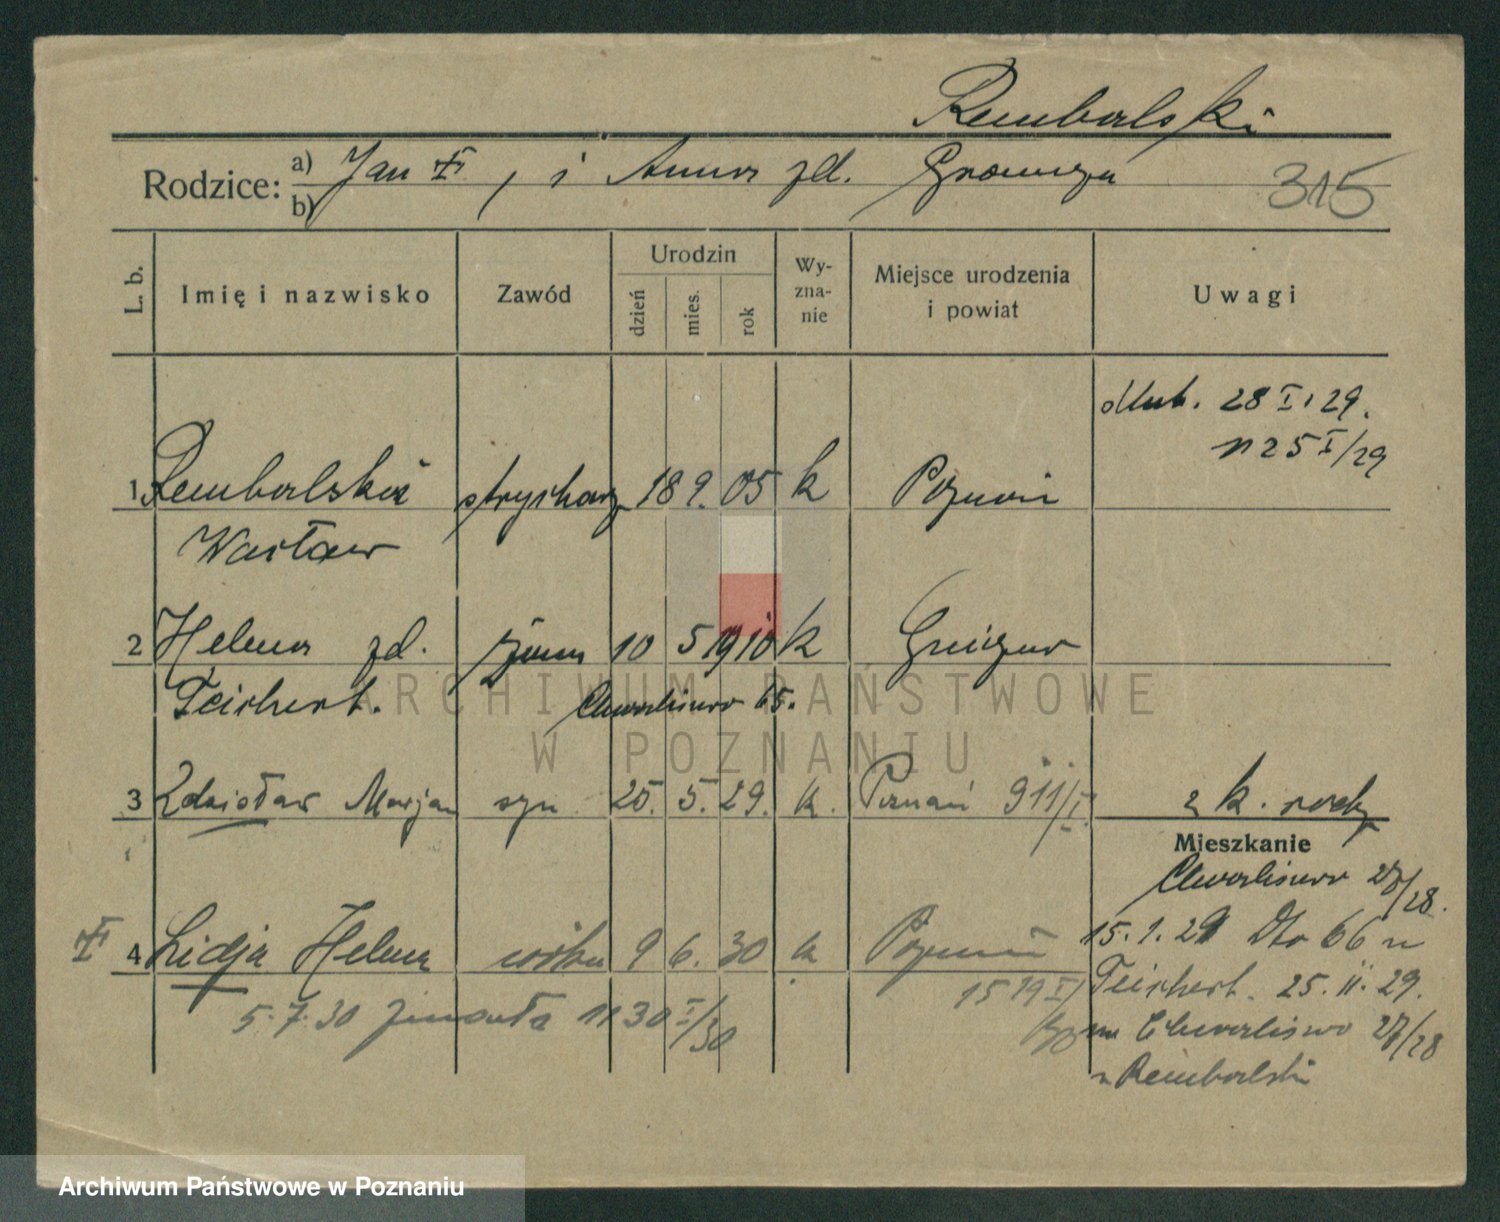 Rembalski
Rodzice: a) Jan , i Anna zd.
b)
315
L. b.
Imię i nazwisko
Zawód
Urodzin
dzień
mies.
rok
Wy-
zna-
nie
Miejsce urodzenia
i powiat
Uwagi
ślub. 28 I. 29.
n 25 I/29
1 Rembalski strycharz 18 9. 05 k Poznań
Wacław
2 Helena zd. żona 10 5 1910 k Gniezno
Teichert. Chwaliszewo 65.
ARCHIWUM PAŃSTWOWE
W POZNANIU
3 Zdzisław Marjan syn 25. 5. 29. k. Poznań 911/I
2 k. rodz
Mieszkanie
Chwaliszewo 27/28.
4 Lidja Helena córka 9 6. 30 k Poznań
15. 1. 29 Dto 66 u
1519 I/ Teichert. 25. 11. 29.
5. 7. 30 zmarła 1130 I/30
Chwaliszewo 27/28
u Rembalski
Archiwum Państwowe w Poznaniu